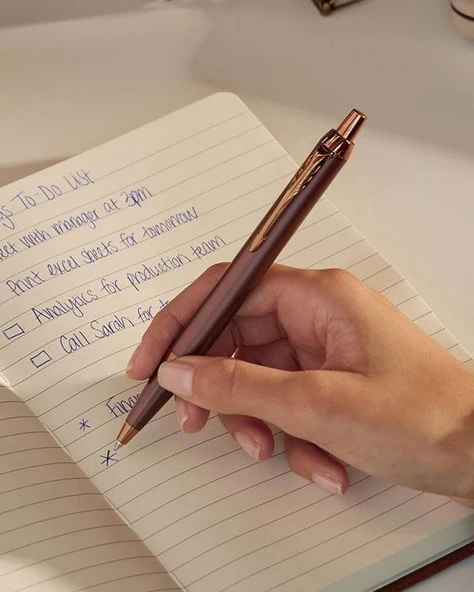 To Do List
with manager at 3pm
Print excel sheets for tomorrow
☐ Analytics for production team
☐ Call Sarah for
*
*